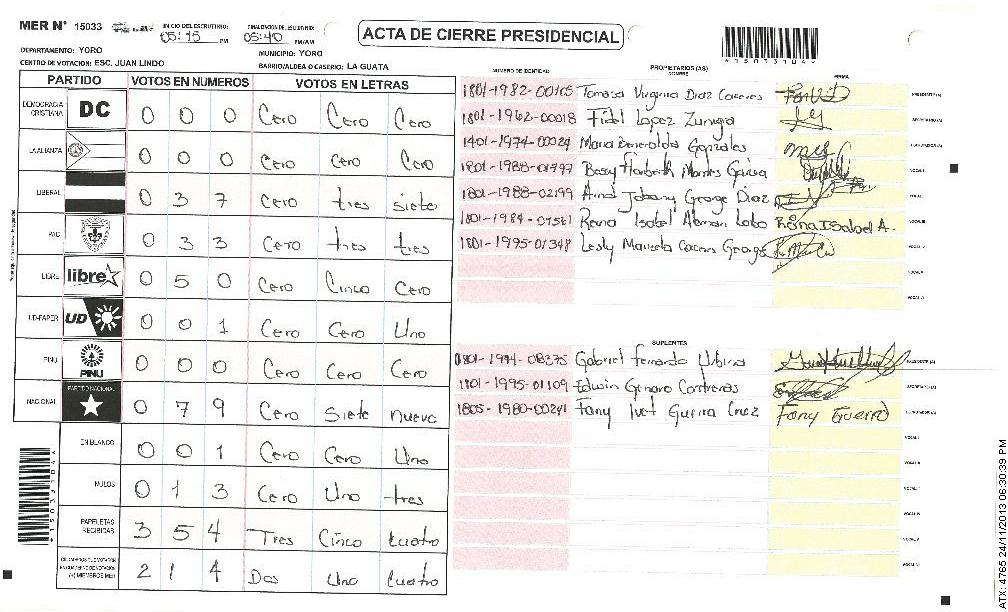 MER N° 15033
INICIO DEL ESCRUTINIO: 05:15 PM
FINALIZACION DEL ESCRUTINIO: 05:40 PM/AM
ACTA DE CIERRE PRESIDENCIAL
*15033104*
DEPARTAMENTO: YORO
MUNICIPIO: YORO
CENTRO DE VOTACION: ESC. JUAN LINDO
BARRIO/ALDEA O CASERIO: LA GUATA
PARTIDO VOTOS EN NUMEROS VOTOS EN LETRAS
DEMOCRACIA CRISTIANA DC 0 0 0 Cero Cero Cero
LA ALIANZA 0 0 0 Cero Cero Cero
LIBERAL 0 3 7 Cero tres siete
PAC 0 3 3 Cero tres tres
LIBRE libre 0 5 0 Cero Cinco Cero
UD-FAPER UD 0 0 1 Cero Cero Uno
PINU PINU 0 0 0 Cero Cero Cero
NACIONAL PARTIDO NACIONAL 0 7 9 Cero Siete nueve
EN BLANCO 0 0 1 Cero Cero Uno
NULOS 0 1 3 Cero Uno tres
PAPELETAS RECIBIDAS 3 5 4 Tres Cinco Cuatro
(+) MIEMBROS MER 2 1 4 Dos Uno Cuatro
NUMERO DE IDENTIDAD PROPIETARIOS (AS) NOMBRE FIRMA
1801-1982-00105 Tomasa Virginia Diaz Caceres PRESIDENTE (A)
1801-1962-00018 Fidel Lopez Zuniga SECRETARIO (A)
1401-1974-00024 Maria Beneralda Gonzales ESCRUTADOR (A)
1801-1988-01797 Bessy Montes VOCAL I
1801-1988-02199 George Diaz VOCAL II
1801-1984- Reina Isabel Aleman Lobo Reina Isabel A. VOCAL III
1801-1995-01348 Lesly Marisela Caceres George VOCAL IV
SUPLENTES
1801-1994- Gabriel Fernando Urbina PRESIDENTE (A)
1801-1995-01109 Edwin Genaro Contreras SECRETARIO (A)
1805-1980-00241 Fany Ivet Guerra Cruz Fany Guerra ESCRUTADOR (A)
*15033104*
ATX: 4765 24/11/2013 06:30:39 PM